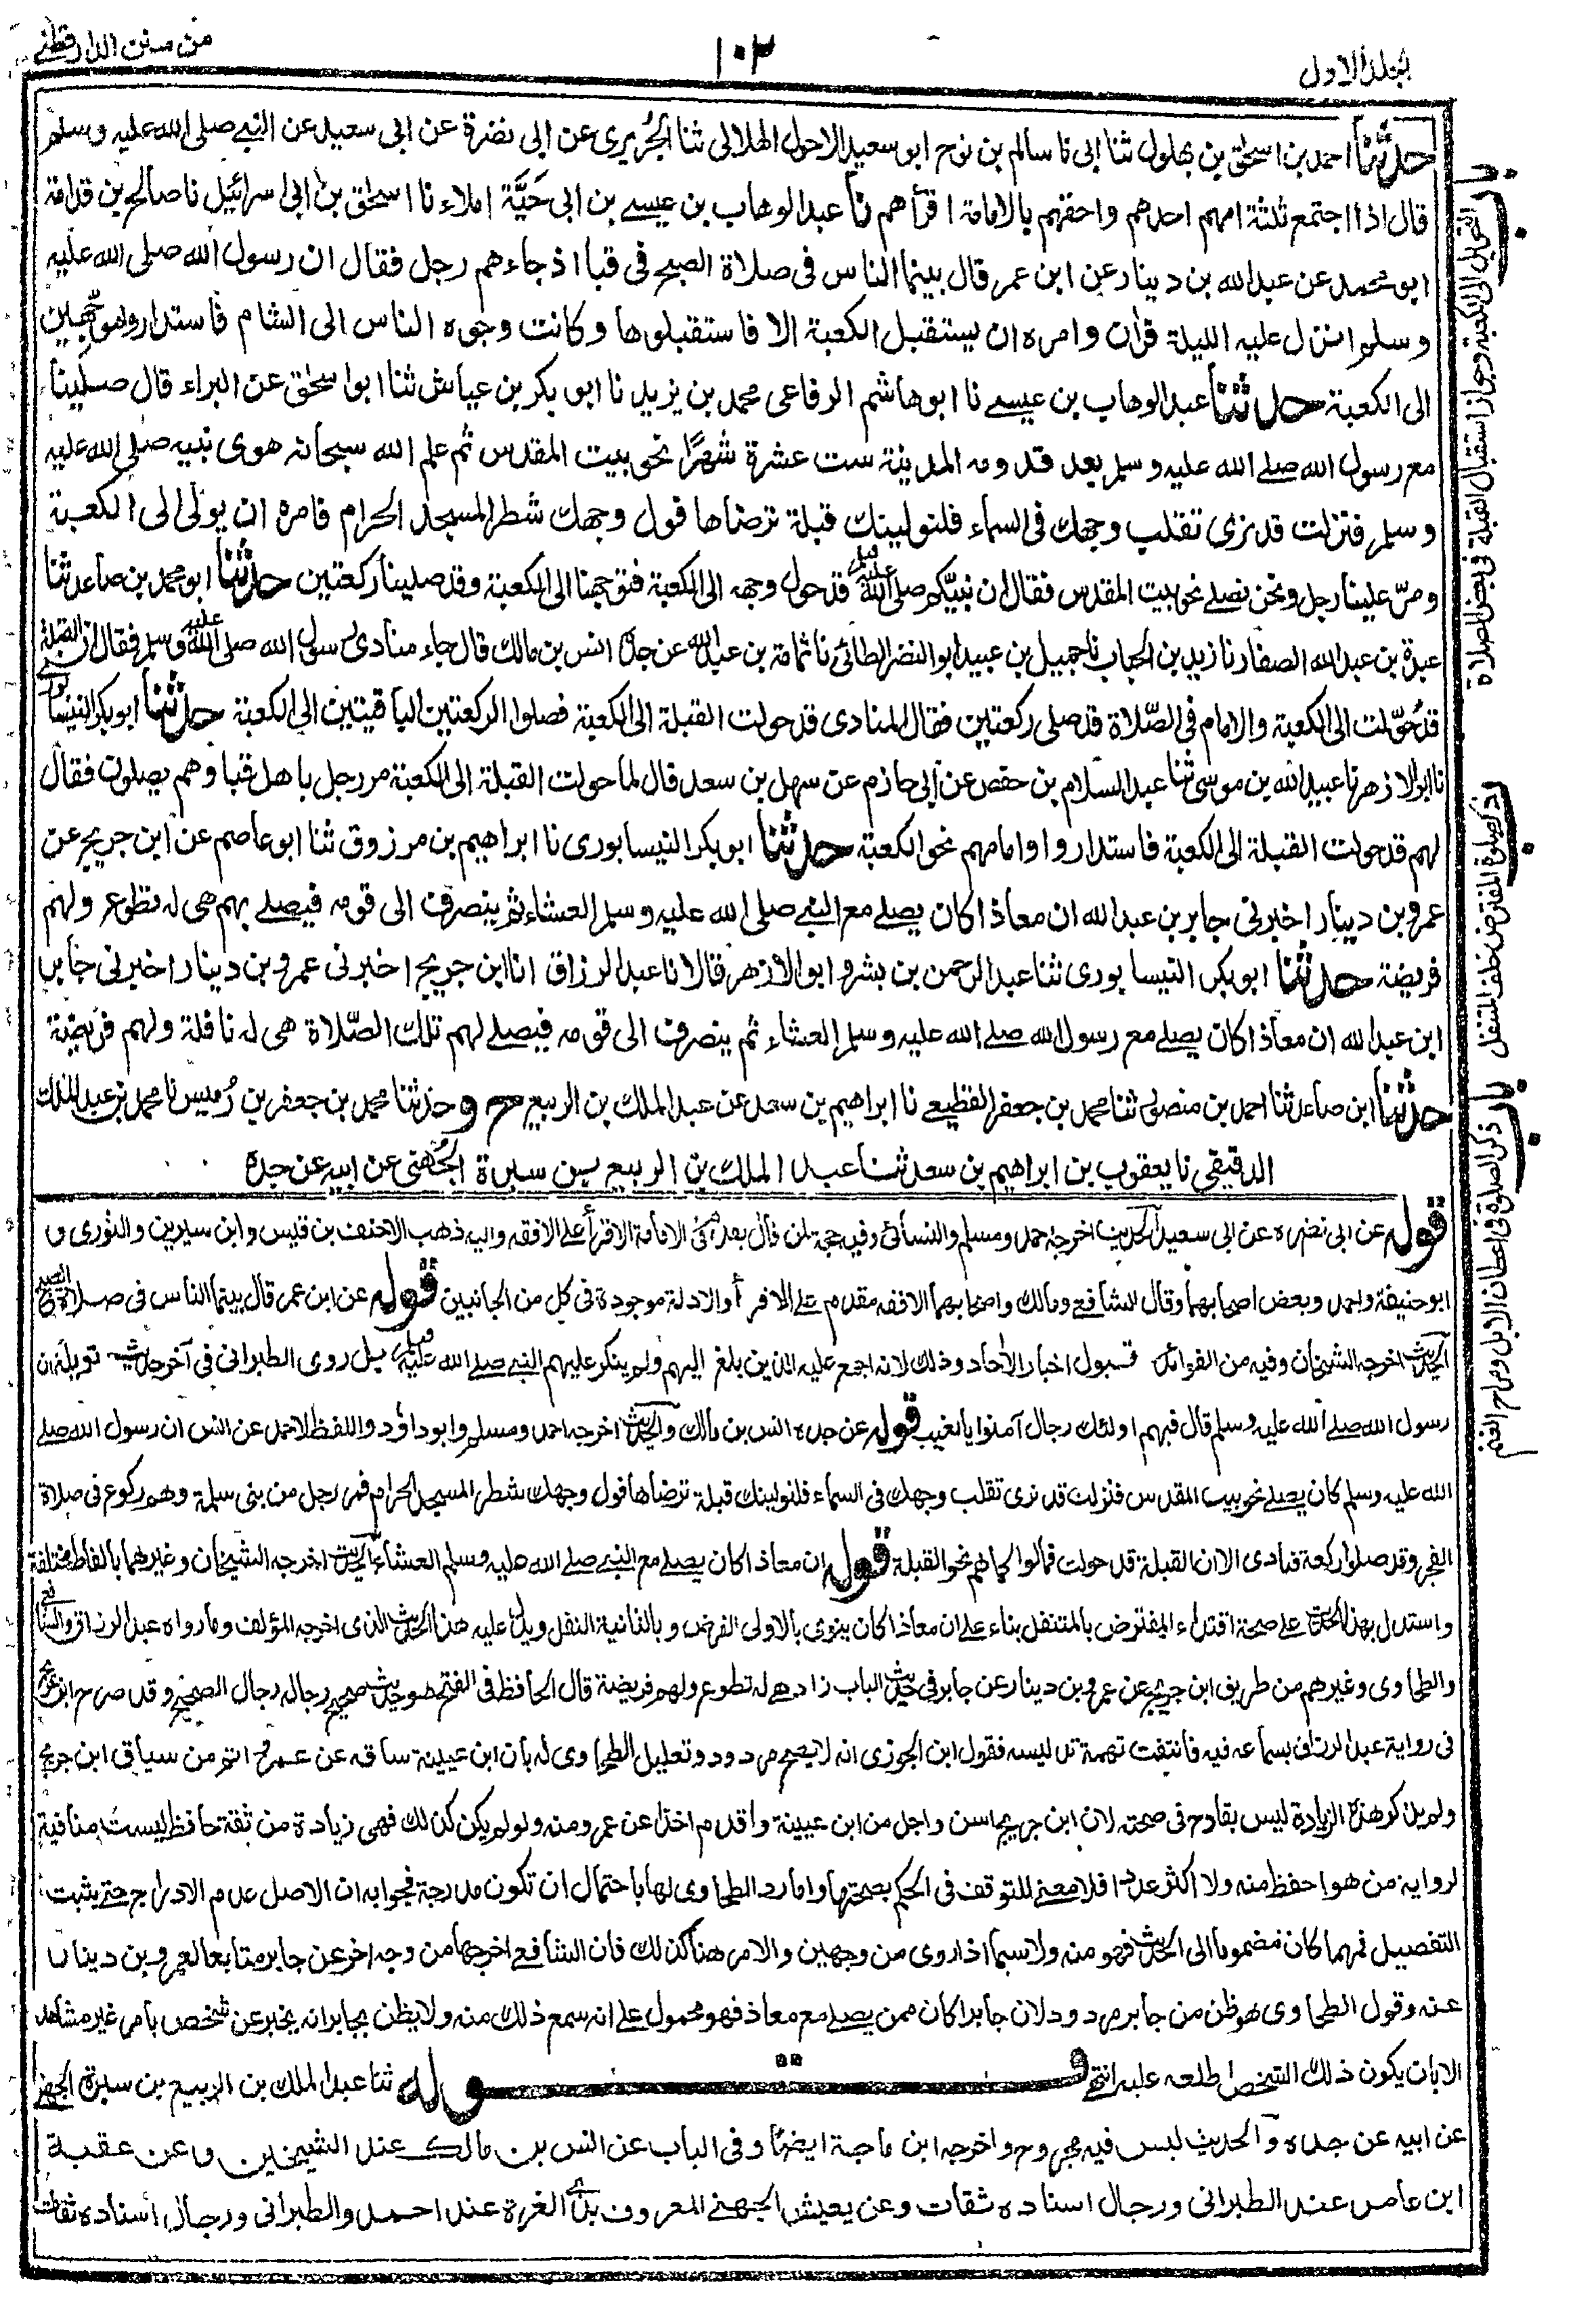 الجلد الاول
١٠٢
من سنن الدارقطني
حدثنا احمد بن اسحٰق بن بهلول ثنا ابى نا سالم بن نوح ابو سعيد الاحول الهلالى ثنا الجُريرى عن ابى نضرة عن ابى سعيد عن النبى صلى الله عليه وسلم
قال اذا اجتمع ثلثة امهم احدهم واحقهم بالامامة اقرأهم نا عبد الوهاب بن عيسے بن ابى حَيَّة املاء نا اسحٰق بن ابى اسرائيل نا صالح بن قدامة
ابو محمد عن عبد الله بن دينار عن ابن عمر قال بينما الناس فى صلاة الصبح فى قبا اذ جاءهم رجل فقال ان رسول الله صلى الله عليه
وسلم انزل عليه الليلة قرٰان وامره ان يستقبل الكعبة الا فاستقبلوها وكانت وجوه الناس الى الشام فاستداروا موجهين
الى الكعبة حدثنا عبد الوهاب بن عيسے نا ابو هاشم الرفاعى محمد بن يزيد نا ابو بكر بن عياش ثنا ابو اسحٰق عن البراء قال صلينا
مع رسول الله صلے الله عليه وسلم بعد قدومه المدينة ست عشرة شهرًا نحو بيت المقدس ثم علم الله سبحانه هوى نبيه صلى الله عليه
وسلم فنزلت قد نرى تقلب وجهك فى السماء فلنولينك قبلة ترضاها فول وجهك شطر المسجد الحرام فامره ان يولى الى الكعبة
ومرّ علينا رجل ونحن نصلے نحو بيت المقدس فقال ان نبيّكم صلى الله عليه وسلم قد حول وجهه الى الكعبة فتوجهنا الى الكعبة وقد صلينا ركعتين حدثنا ابو محمد بن صاعد ثنا
عبدة بن عبد الله الصفار نا زيد بن الحباب نا جميل بن عبيد ابو النضر الطائى نا ثمامة بن عبد الله عن جده انس بن مالك قال جاء منادى رسول الله صلى الله عليه وسلم فقال ان القبلة
قد حُوّلت الى الكعبة والامام فى الصّلاة قد صلى ركعتين فقال المنادى قد حولت القبلة الى الكعبة فصلوا الركعتين الباقيتين الى الكعبة حدثنا ابو بكر النيسابورى
نا ابو الازهر نا عبيد الله بن موسى ثنا عبد السلام بن حفص عن ابى حازم عن سهل بن سعد قال لما حولت القبلة الى الكعبة مر رجل باهل قبا وهم يصلون فقال
لهم قد حولت القبلة الى الكعبة فاستداروا وامامهم نحو الكعبة حدثنا ابو بكر النيسابورى نا ابراهيم بن مرزوق ثنا ابو عاصم عن ابن جريج عن
عمرو بن دينار اخبرنى جابر بن عبد الله ان معاذا كان يصلے مع النبى صلى الله عليه وسلم العشاء ثم ينصرف الى قومه فيصلے بهم هى له تطوع ولهم
فريضة حدثنا ابو بكر النيسابورى ثنا عبد الرحمن بن بشر و ابو الازهر قالا نا عبد الرزاق انا ابن جريج اخبرنى عمرو بن دينار اخبرنى جابر
ابن عبد الله ان معاذا كان يصلے مع رسول الله صلے الله عليه وسلم العشاء ثم ينصرف الى قومه فيصلے لهم تلك الصّلاة هى له نافلة ولهم فريضة
حدثنا ابن صاعد ثنا احمد بن منصور ثنا محمد بن جعفر القطيعے نا ابراهيم بن سعد عن عبد الملك بن الربيع ح وحدثنا محمد بن جعفر بن رُميس نا محمد بن عبد الملك
الدقيقى نا يعقوب بن ابراهيم بن سعد ثنا عبد الملك بن الربيع بن سبرة الجُهنى عن ابيه عن جده
قوله عن ابى نضره عن ابى سعيد الحديث اخرجه احمد ومسلم والنسائى وفيه حجة لمن قال يقدم فى الامامة الاقرأ على الافقه واليه ذهب الاحنف بن قيس وابن سيرين والثورى و
ابو حنيفة واحمد وبعض اصحابهما وقال الشافعے ومالك واصحابهما الافقه مقدم على الاقرأ والادلة موجودة فى كل من الجانبين قوله عن ابن عمر قال بينما الناس فى صلاة الصبح
الحديث اخرجه الشيخان وفيه من الفوائد قبول اخبار الآحاد وذلك لانه اجمع عليه الذين بلغ اليهم ولم ينكر عليهم النبى صلے الله عليه وسلم بل روى الطبرانى فى آخر حديث تويلة ان
رسول الله صلے الله عليه وسلم قال فيهم اولئك رجال آمنوا بالغيب قوله عن جده انس بن مالك والحديث اخرجه احمد ومسلم وابو داؤد واللفظ لاحمد عن انس ان رسول الله صلے
الله عليه وسلم كان يصلے نحو بيت المقدس فنزلت قد نرى تقلب وجهك فى السماء فلنولينك قبلة ترضاها فول وجهك شطر المسجد الحرام فمر رجل من بنى سلمة وهم ركوع فى صلاة
الفجر وقد صلوا ركعة فنادى الا ان القبلة قد حولت فمالوا كما هم نحو القبلة قوله ان معاذا كان يصلے مع النبى صلے الله عليه وسلم العشاء الحديث اخرجه الشيخان وغيرهما بالفاظ مختلفة
واستدل بهذا الحديث على صحة اقتداء المفترض بالمتنفل بناء على ان معاذا كان ينوى بالاولى الفرض وبالثانية النفل ويدل عليه هذا الحديث الذى اخرجه المؤلف وما رواه عبد الرزاق والشافعے
والطحاوى وغيرهم من طريق ابن جريج عن عمرو بن دينار عن جابر فى حديث الباب زاد هے له تطوع ولهم فريضة قال الحافظ فى الفتح هو حديث صحيح رجاله رجال الصحيح وقد صرح ابن جريج
فى رواية عبد الرزاق بسماعه فيه فانتفت تهمة تدليسه فقول ابن الجوزى انه لا يصح مردود وتعليل الطحاوى له بان ابن عيينة ساقه عن عمرو اتم من سياق ابن جريج
ولم يذكر هذه الزيادة ليس بقادح فى صحته لان ابن جريج اسن واجل من ابن عيينة واقدم اخذا عن عمرو منه ولو لم يكن كذلك فهى زيادة من ثقة حافظ ليست منافية
لرواية من هو احفظ منه ولا اكثر عددا فلا معنى للتوقف فى الحكم بصحتها واما رد الطحاوى لها باحتمال ان تكون مدرجة فجوابه ان الاصل عدم الادراج حتے يثبت
التفصيل فمهما كان مضموما الى الحديث فهو منه ولا سيما اذا روى من وجهين والامر هنا كذلك فان الشافعے اخرجها من وجه اخر عن جابر متابعا لعمرو بن دينار
عنه وقول الطحاوى هو ظن من جابر مردود لان جابرا كان ممن يصلے مع معاذ فهو محمول على انه سمع ذلك منه ولا يظن بجابر انه يخبر عن شخص بامر غير مشاهد
الا بان يكون ذلك الشخص اطلعه عليه انتهے قوله ثنا عبد الملك بن الربيع بن سبرة الجهنے
عن ابيه عن جده والحديث ليس فيه مجروح واخرجه ابن ماجة ايضًا وفى الباب عن انس بن مالك عند الشيخين وعن عقبة
ابن عامر عند الطبرانى ورجال اسناده ثقات وعن يعيش الجهنے المعروف بذى الغرة عند احمد والطبرانى ورجال اسناده ثقات
باب التحويل الى الكعبة وجواز استقبال القبلة فى بعض الصلاة
باب ذكر صلوة المفترض خلف المتنفل
باب ذكر الصلوة فى اعطان الابل ومراح الغنم